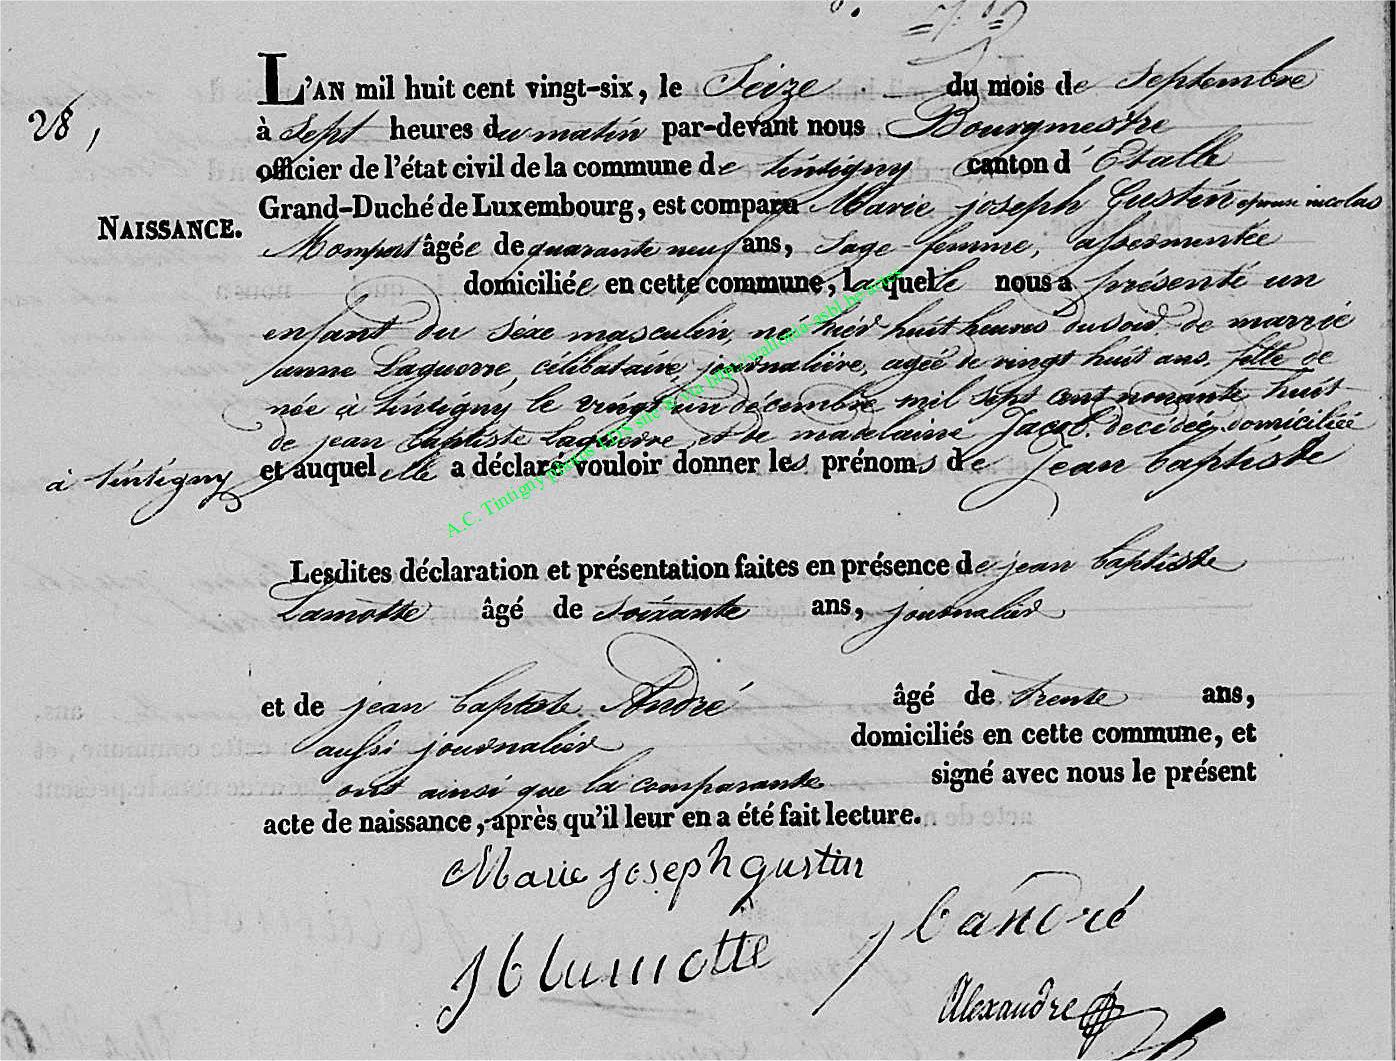 28,
NAISSANCE.
L'AN mil huit cent vingt-six, le Seize du mois de Septembre
à Sept heures du matin par-devant nous Bourgmestre
officier de l'état civil de la commune de tintigny canton d' Etalle
Grand-Duché de Luxembourg, est comparu Marie joseph Gustin epouse nicolas
âgée de quarante neuf ans, Sage-femme, assermentée
domiciliée en cette commune, laquelle nous a présenté un
enfant du Séxe masculin, né hier huit heures du soir de marrie
janne Laguerre, célibataire, journalière, agée de vingt huit ans. fille de
née à tintigny le vingt un décembre mil sept cent nonante huit
de jean baptiste Laguerre et de madelaine Jacob. decedée, domiciliée
à tintigny et auquel elle a déclaré vouloir donner les prénoms de Jean baptiste
A.C. Tintigny photos LDS site & via http://wallonia-asbl.be/actes
Lesdites déclaration et présentation faites en présence de jean baptiste
Lamotte âgé de soixante ans, journalier
et de jean baptiste André âgé de trente ans,
aussi journalier domiciliés en cette commune, et
ont ainsi que la comparante signé avec nous le présent
acte de naissance, après qu'il leur en a été fait lecture.
Marie joseph gustin
J b andré
J b lamotte
Alexandre